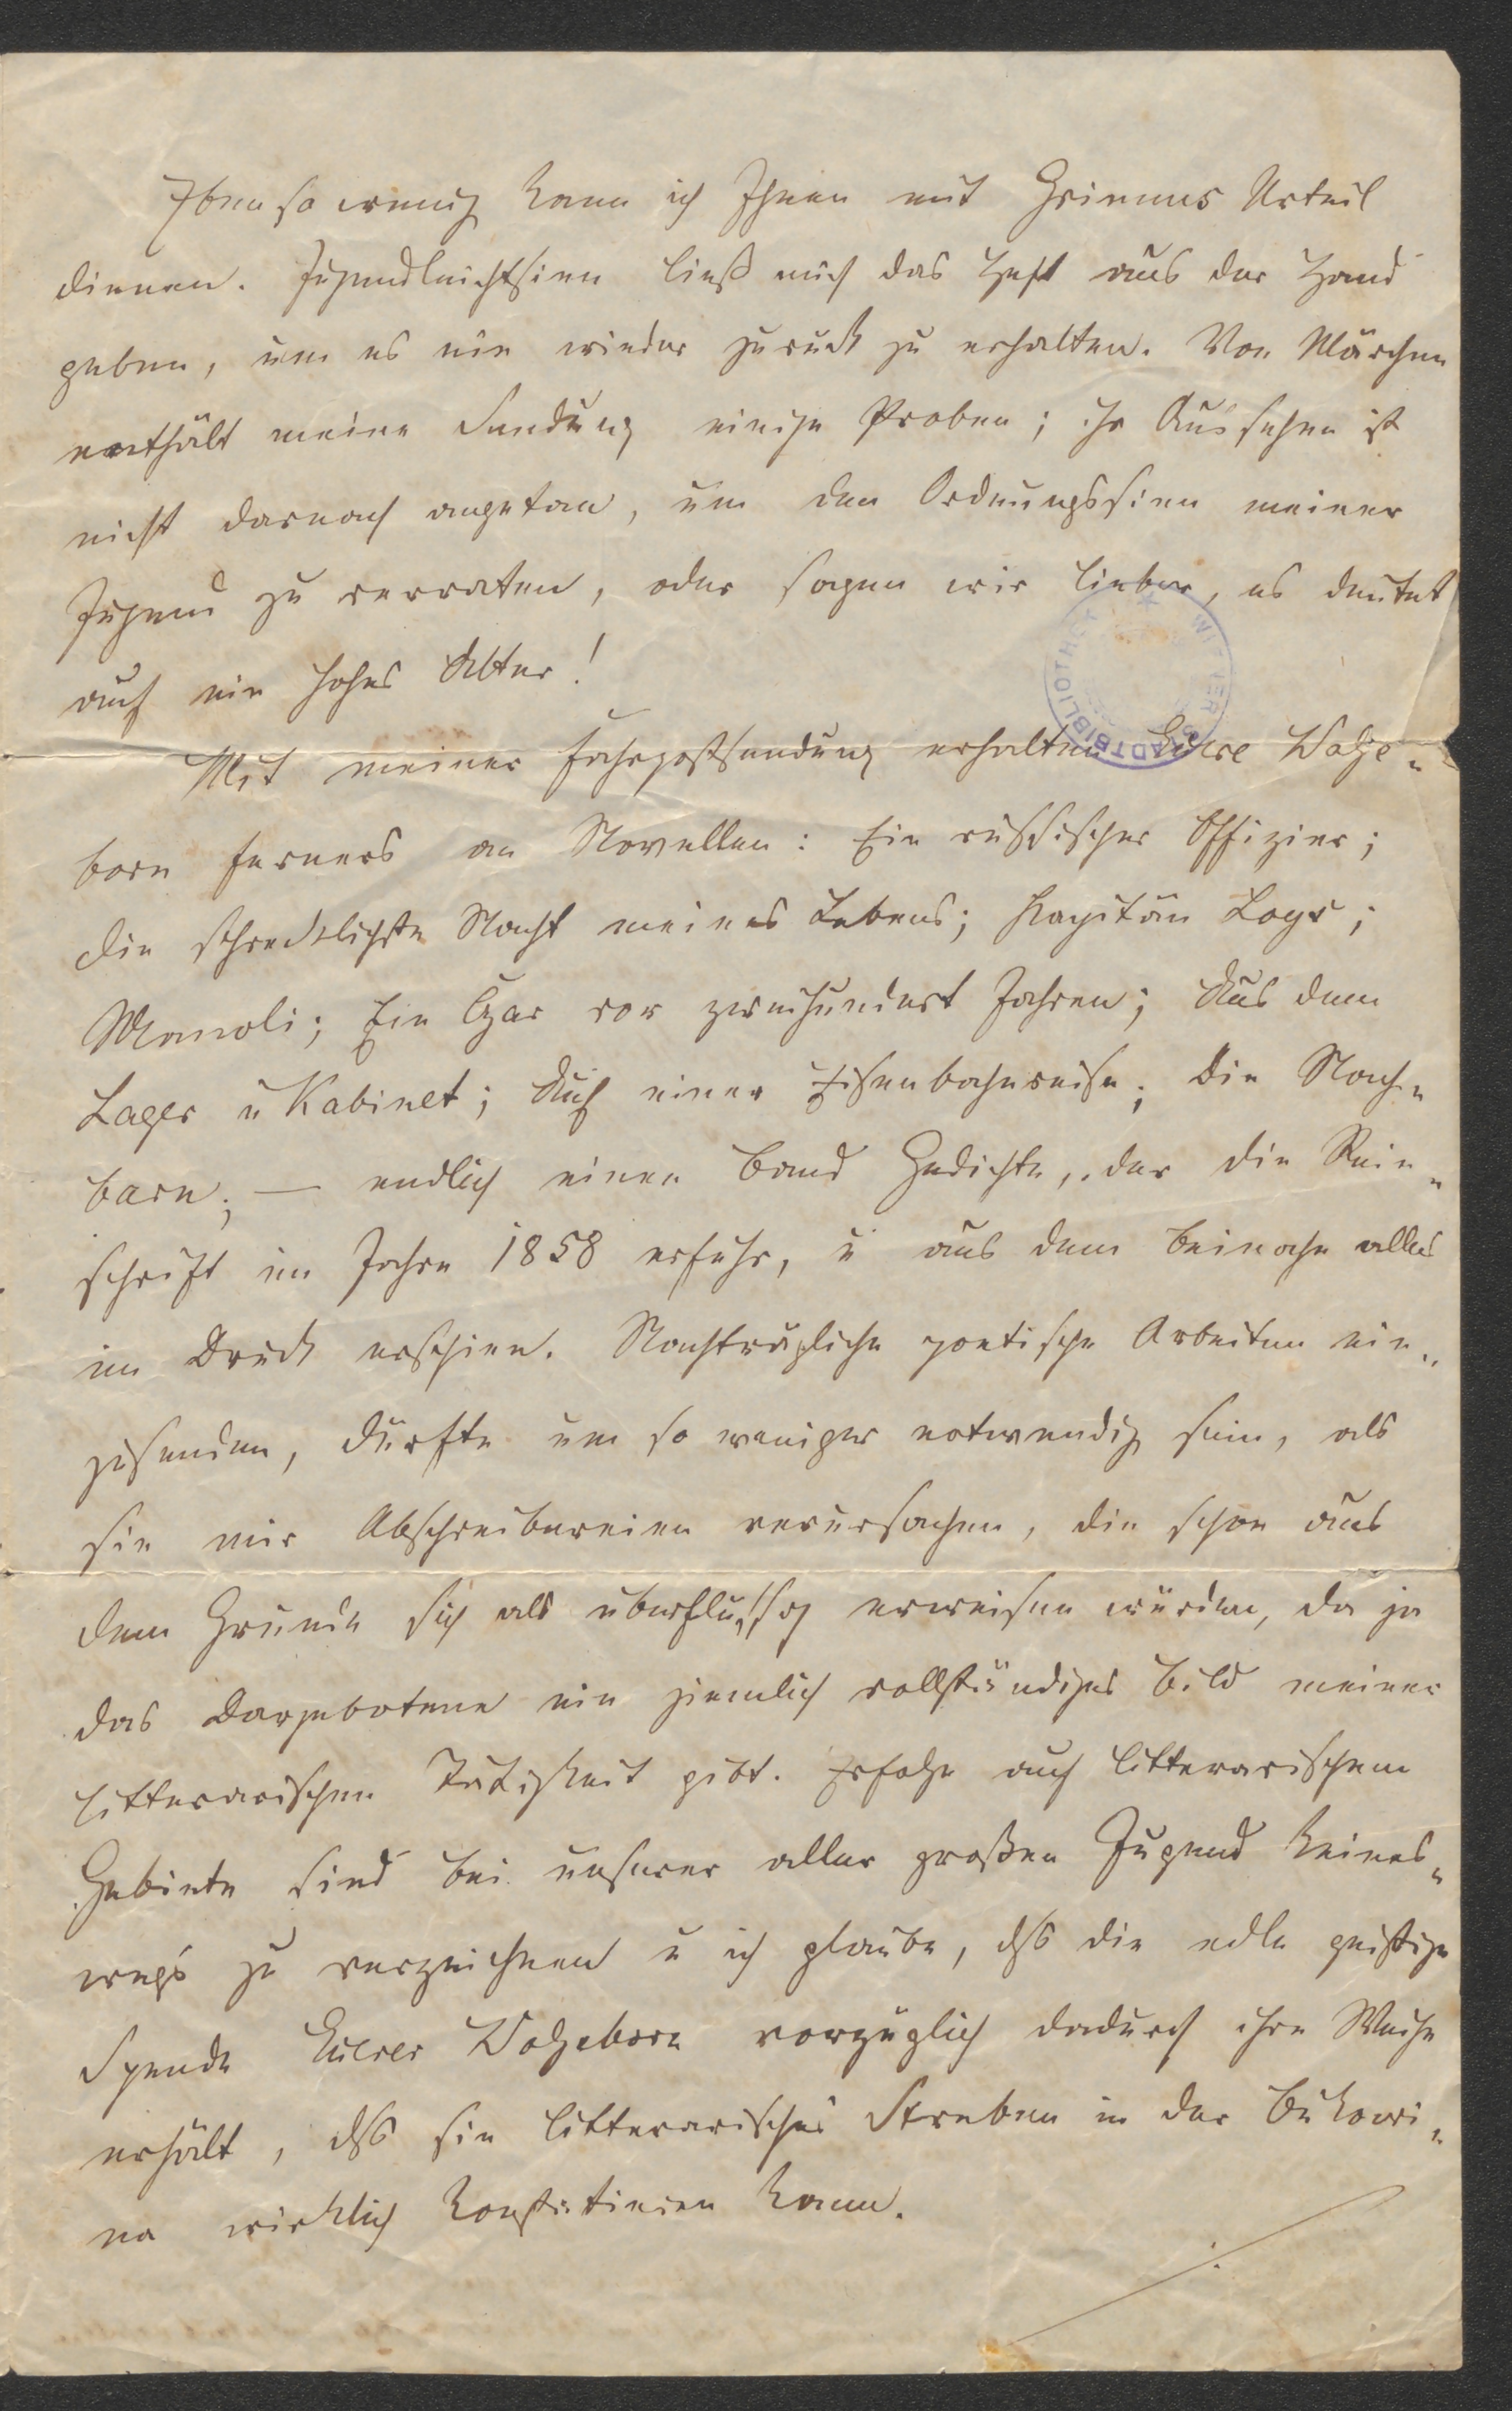 Ebenso wenig kann ich Ihnen mit Grimms Urteil
dienen. Jugendleichtsinn ließ mich das Heft aus der Hand
geben, um es nie wieder zurück zu erhalten. Von Märchen
enthält meine Sendung einige Proben; ihr Aussehen ist
nicht darnach angetan, um den Ordnungssinn meiner
Jugend zu verraten, oder sagen wir lieber, es deutet
auf ein hohes Alter!
Mit meiner Fahrpostsendung erhalten Euere Wolge-
born ferners an Novellen: Ein russischer Offizier;
die schrecklichste Nacht meines Lebens; Kapitän Logs;
Manoli; Ein Czar vor zweihundert Jahren; Aus dem
Lager u Kabinet; Auf einer Eisenbahnreise; Die Nach-
barn; — endlich einen Band Gedichte, der die Rein-
schrift im Jahre 1858 erfuhr, u aus dem beinahe alles
im Druck erschien. Nachträgliche poetische Arbeiten ein-
zusenden, dürfte um so weniger notwendig sein, als
sie mir Abschreibereien verursachen, die schon aus
dem Grunde sich als überflüssig erweisen würden, da ja
das Dargebotene ein ziemlich vollständiges Bild meiner
litterarischen Tätigkeit gibt. Erfolge auf litterarischem
Gebiete sind bei unserer aller großen Jugend keines-
wegs zu verzeichnen u ich glaube, dß die edle geistige
Spende Euerer Wolgeborn vorzüglich dadurch ihre Weihe
erhält, dß sie litterarisches Streben in der Bukowi-
na wirklich konstatieren kann.
WIENER STADTBIBLIOTHEK